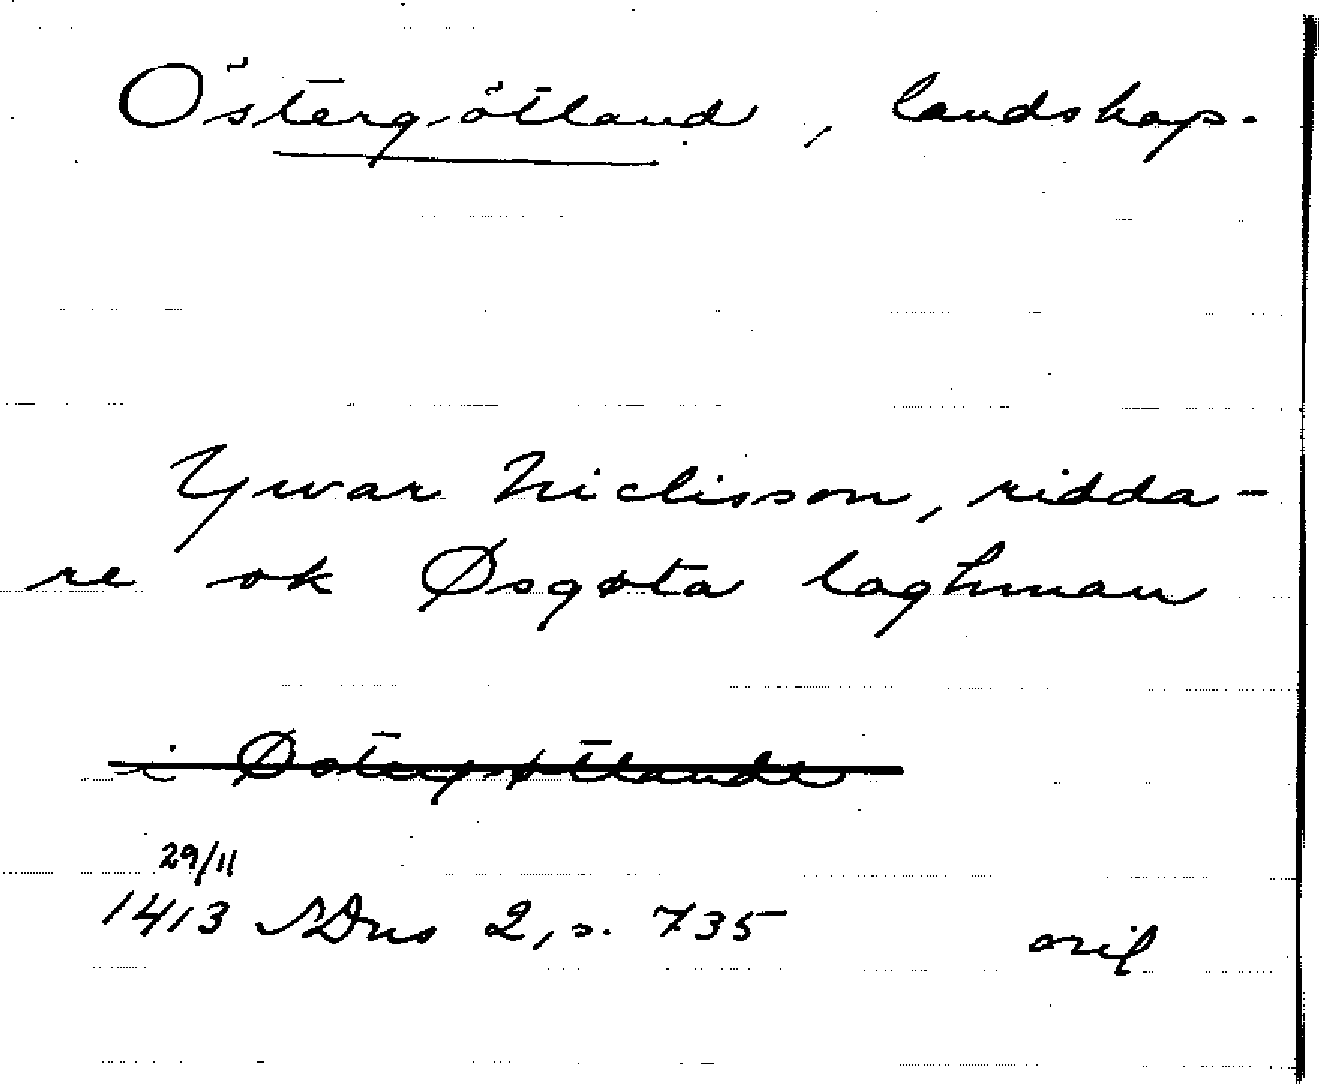 Östergötland, landskap.
Ywar Niclisson, ridda-
re ok Øsgøta laghman
i Østergøtlande
29/11
1413 SDns 2, s. 735 orig